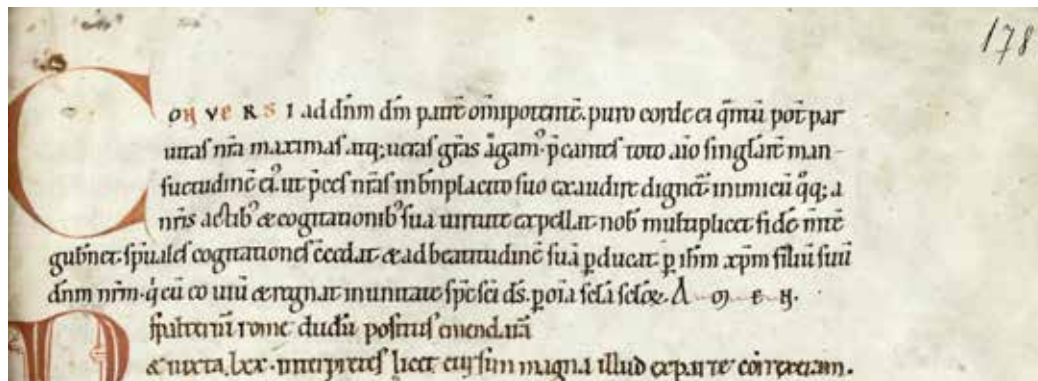 178
CONVERSI ad dn̄m dm̄ patrē om̄ipotentē. puro corde ei q̄ntū pot̄ par
uitas nr̄a maximas atq; ueras gr̄as agam᷒. p̄cantes toto aīo singlarē man-
suetudinē ei᷒. ut p̄ces nr̄as in bn̄placito suo exaudire dignet̄. inimicū q᷒q; a
nr̄is actib᷒ & cogitationib᷒ sua uirtute expellat. nob̄ multiplicet fidē m̄tē
gub̄net. sp̄uales cogitationes c̄cedat. & ad beatitudinē suā p̱ducat. p̱ ih̄m xp̄m filiū suū
dn̄m nr̄m. q̄ cū eo uiuit & regnat in unitate sp̄c sc̄i ds̄. p̱ oīa sc̄la sc̄lo℞. AMEN.
Psalteriū rome dudū positus emendarā
& iuxta .lxx. interpretes licet cursim magna illud ex parte correxeram.